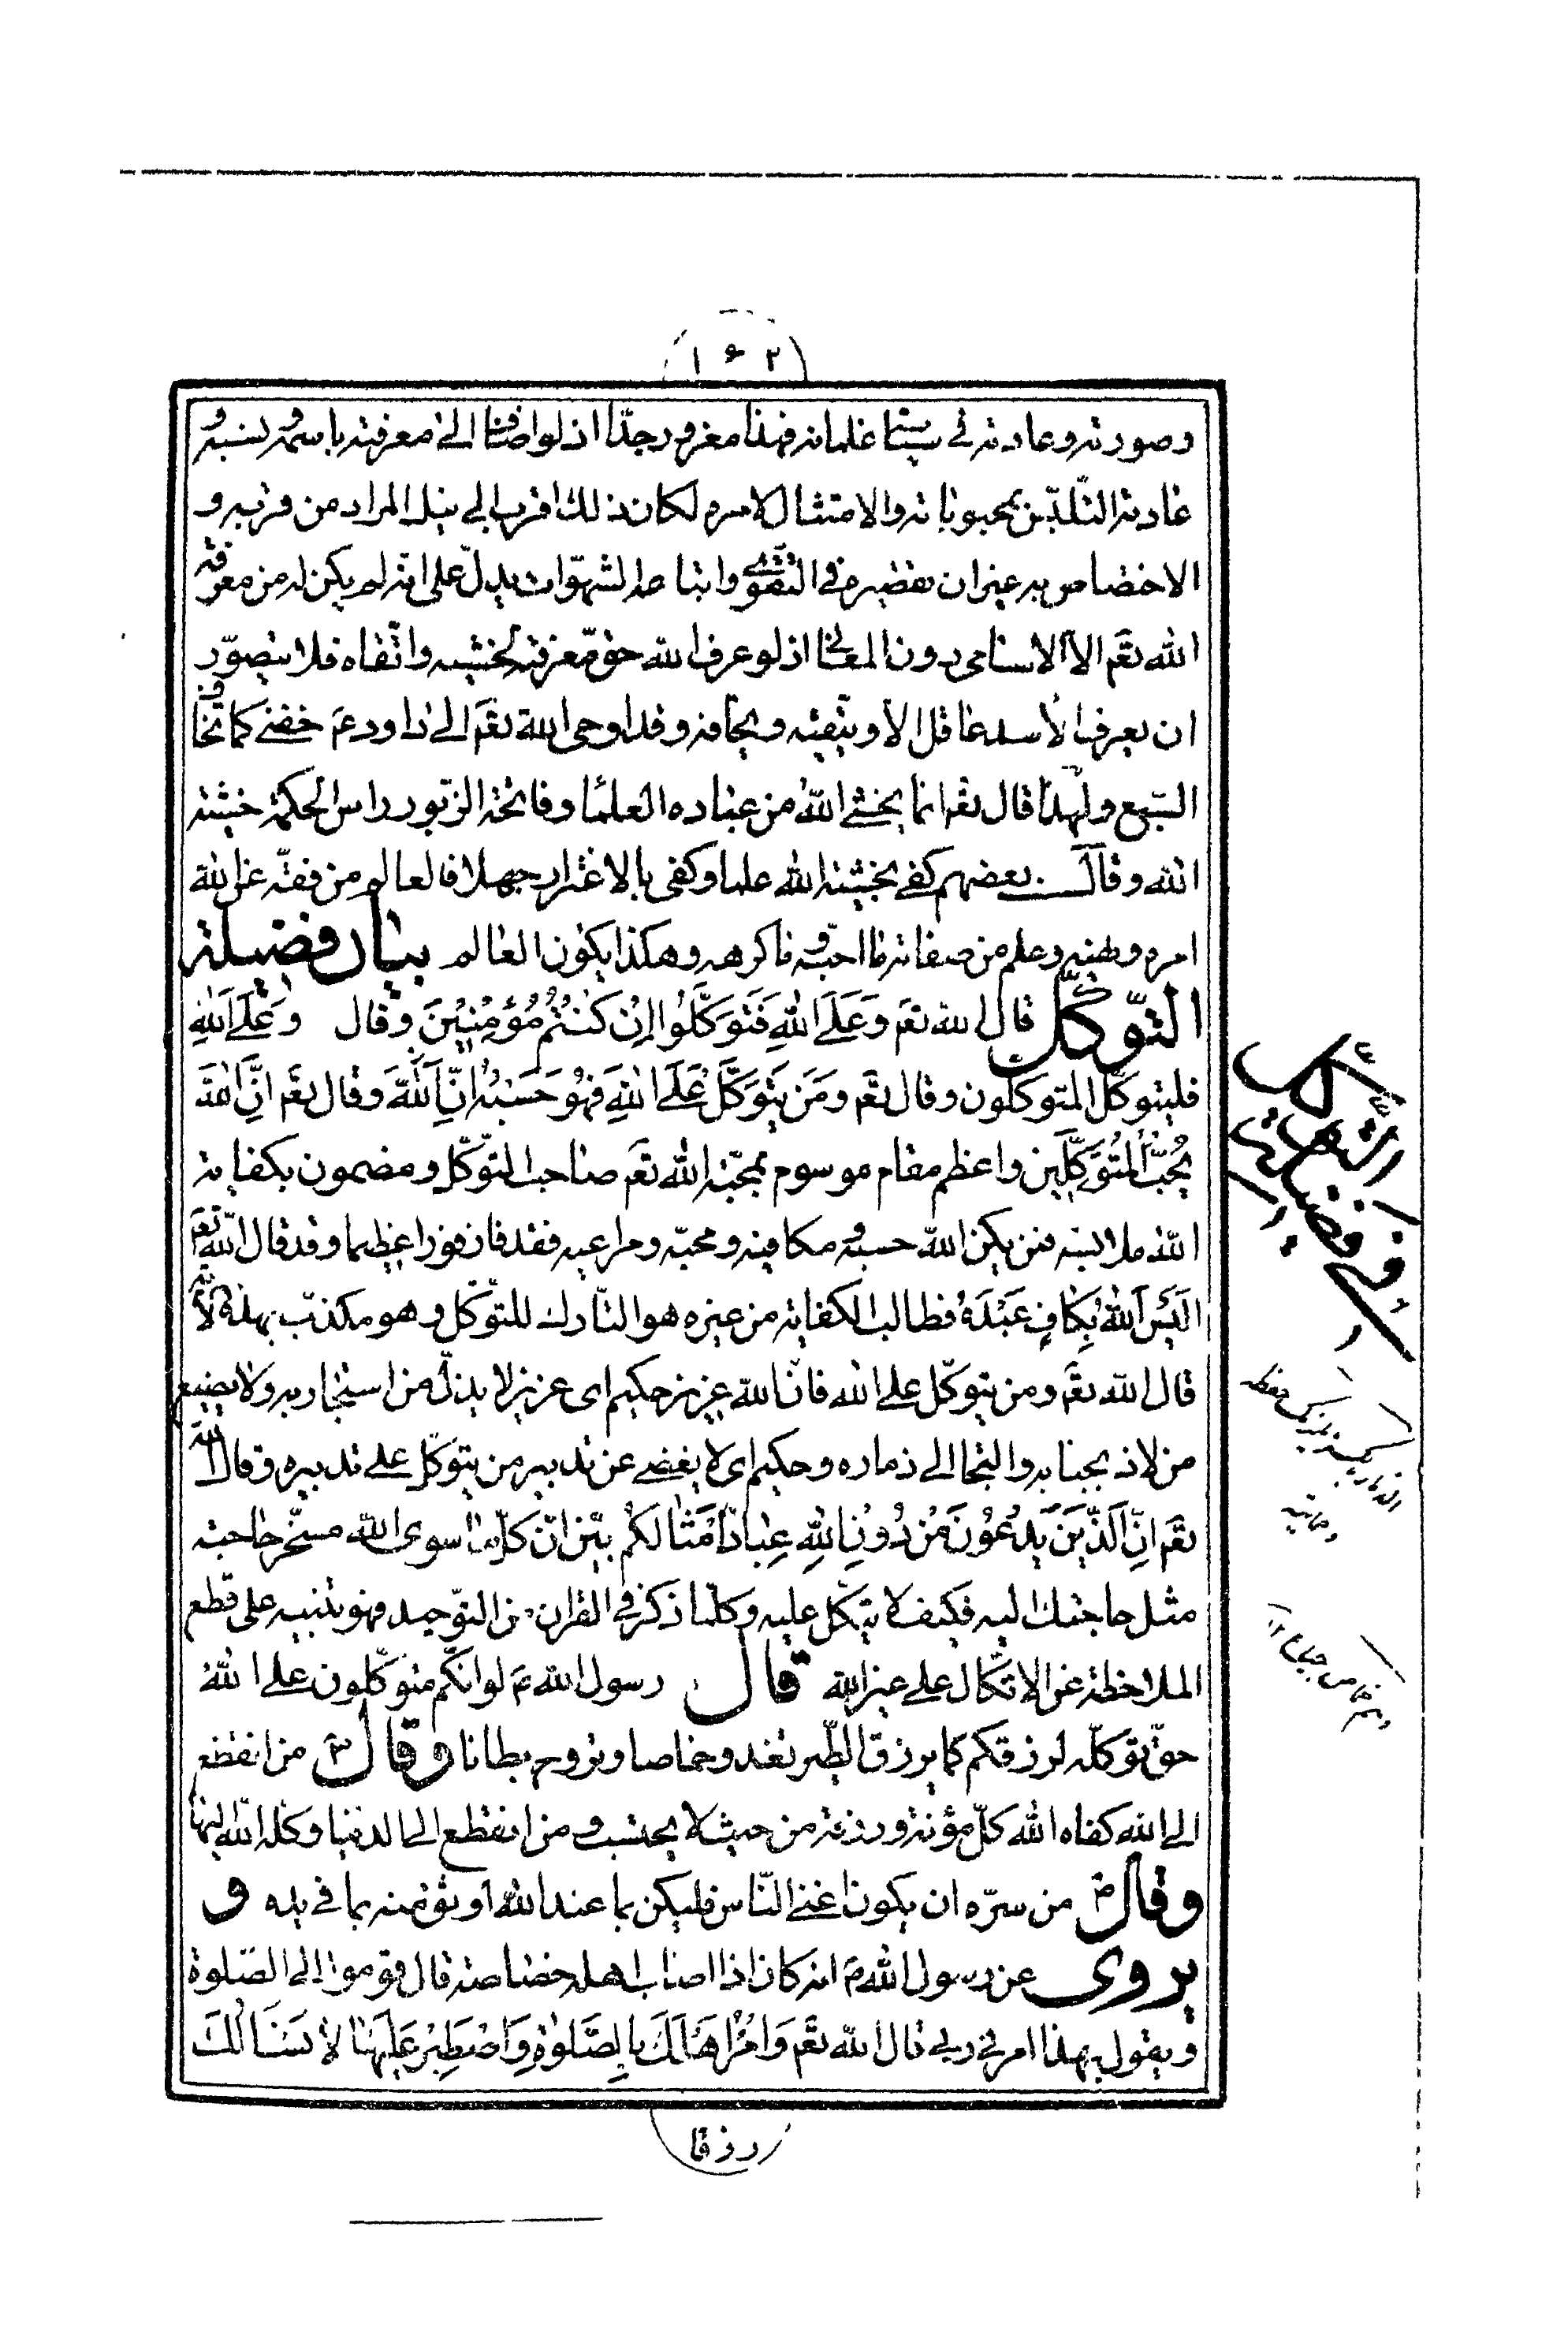 ١٦٢
وصورته وعادته في سياسة غلمانه فهذا مغرور جدّا اذ لو اضاف الى معرفته باسمه ونسبه و
عادته التلبّس بمحبوباته والامتثال لامره لكان ذلك اقرب الى نيل المراد من قربه و
الاختصاص به غير ان تقصيره في التقوى واتباعه الشهوات يدلّ على انه لم يكن له من معرفة
الله تعم الا الاسامي دون المعاني اذ لو عرف الله حق معرفته لخشيه واتّقاه فلا يتصوّر
ان يعرف الاسد عاقل الا ويتّقيه ويخافه وقد اوحى الله تعم الى داود ع خفني كما تخاف
السّبع ولهذا قال تعم انما يخشى اللهَ من عباده العلماء وفاتحة الزّبور راس الحكمة خشية
الله وقال بعضهم كفى بخشية الله علما وكفى بالاغترار جهلا فالعالم من فقه عن الله
امره ونهيه وعلم من صفاته ما احبّه وما كرهه وهكذا يكون العالم بيان فضيلة
التّوكّل قال الله تعم وَعَلَى اللهِ فَتَوَكَّلُوا اِنْ كُنْتُمْ مُؤْمِنِيْنَ وقال وَعَلَى اللهِ
فليتوكّل المتوكلون وقال تعم ومَن يَتَوَكَّلْ عَلَى اللهِ فَهُوَ حَسْبُهُ اِنَّ اللهَ وقال تعم اِنَّ اللهَ
يُحِبُّ الْمُتَوَكِّلِين واعظم مقام موسوم بمحبّة الله تعم صاحب التّوكّل ومضمون بكفاية
الله ملابسه فمن يكن الله حسبه ومكافيه ومحبّه ومراعيه فقد فاز فوزا عظيما وقد قال الله تعم
اَلَيْسَ اللهُ بِكَافٍ عَبْدَهُ فطالب الكفاية من غيره هو التّارك للتّوكّل وهو مكذب بهذه الآية
قال الله تعم ومن يتوكّل على الله فانّ الله عزيز حكيم اى عزيز لا يذلّ من استجار به ولا يضيع
من لاذ بجنابه والتجا الى ذماره وحكيم اى لا يغضى عن تدبير من يتوكّل على تدبيره وقال الله
تعم اِنَّ الَّذِيْنَ يَدْعُوْنَ مِنْ دُوْنِ اللهِ عِبَادٌ اَمْثَالُكُمْ بيّن انّ كلّما سوى الله مسخّر حاجته
مثل حاجتك اليه فكيف لا يتّكل عليه وكلّما ذكر في القران من التوحيد فهو تنبيه على قطع
الملاحظة عن الاتّكال على غير الله قال رسول الله ص لو انّكم متوكّلون على الله
حقّ توكّله لرزقكم كما يرزق الطّير تغدو خماصا وتروح بطانا وقال ص من انقطع
الى الله كفاه الله كلّ مؤنة ورزقه من حيث لا يحتسب ومن انقطع الى الدنيا وكله الله اليها
وقال ص من سرّه ان يكون اغنى النّاس فليكن بما عند الله اوثق منه بما في يده و
يروى عن رسول الله ص انه كان اذا اصاب اهله خصاصة قال قوموا الى الصّلوة
ويقول بهذا امرني ربى قال الله تعم وَاْمُرْ اَهْلَكَ بِالصَّلٰوةِ وَاصْطَبِرْ عَلَيْهَا لا نَسْئَالُكَ
رزقا
في فضيلة
التوكل